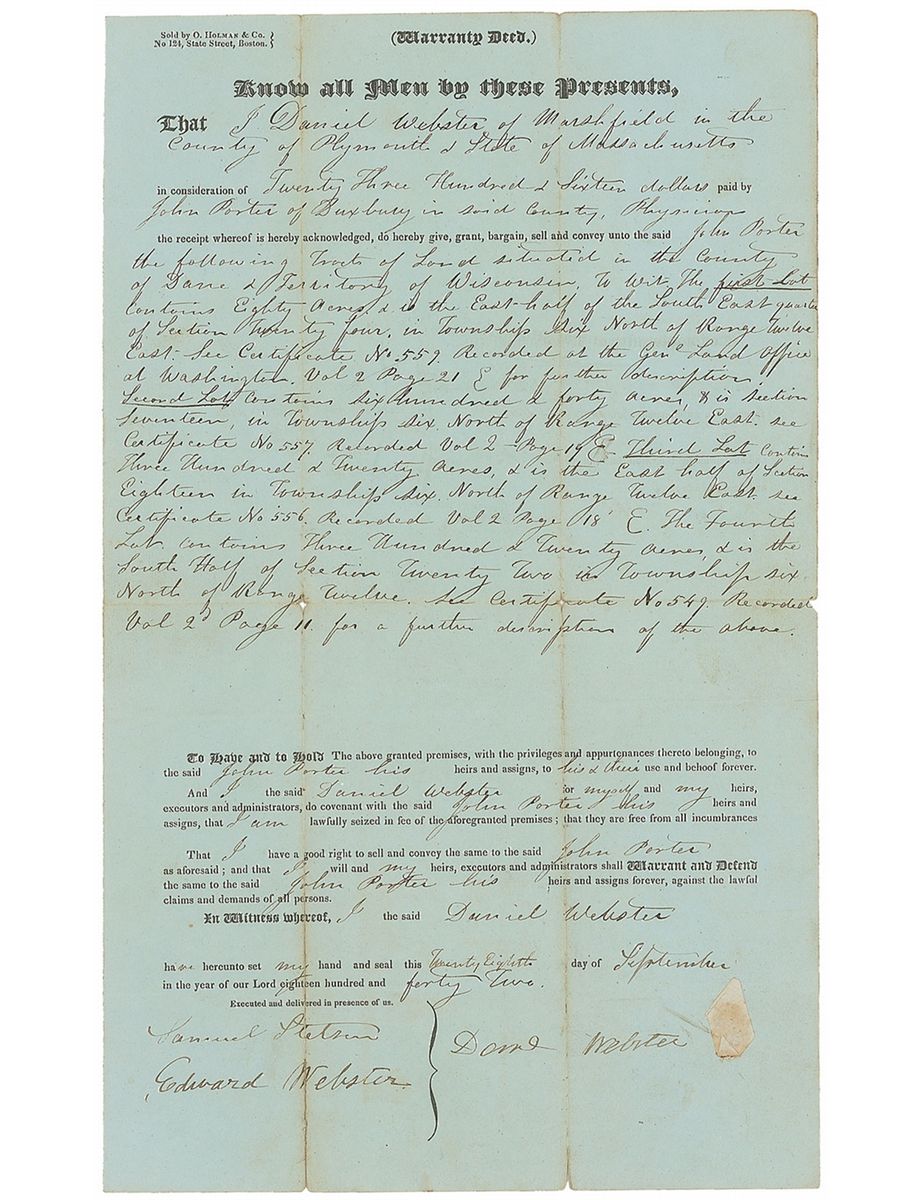 Sold by O. HOLMAN & Co.
No 124, State Street, Boston.
(Warranty Deed.)
Know all Men by these Presents,
That I Daniel Webster of Marshfield in the
County of Plymouth & State of Massachusetts
in consideration of Twenty Three Hundred & Sixteen dollars paid by
John Porter of Duxbury in said County, Physician
the receipt whereof is hereby acknowledged, do hereby give, grant, bargain, sell and convey unto the said John Porter
the following Tracts of Land situated in the County
of Dane & Territory of Wisconsin, To Wit, The first Lot
contains Eighty Acres, & is the East half of the South East quarter
of Section Twenty four, in Township six North of Range Twelve
East. See Certificate No 559 Recorded at the Genl Land Office
at Washington. Vol 2 Page 21 E for further description.
Second Lot contains six Hundred & forty Acres, & is section
Seventeen, in Township six, North of Range Twelve East. see
Certificate No 557. Recorded Vol 2 Page 19 E. Third Lot contains
Three Hundred & Twenty Acres, & is the East half of Section
Eighteen in Township six, North of Range Twelve East. see
Certificate No 556. Recorded Vol 2 Page 18 E. The Fourth
Lot. contains Three Hundred & Twenty Acres, & is the
South Half of Section Twenty Two in Township six
North of Range Twelve. See Certificate No 549. Recorded
Vol 2d Page 11. for a further description of the above.
To Have and to Hold The above granted premises, with the privileges and appurtenances thereto belonging, to
the said John Porter his heirs and assigns, to his & their use and behoof forever.
And I the said Daniel Webster for myself and my heirs,
executors and administrators, do covenant with the said John Porter his heirs and
assigns, that I am lawfully seized in fee of the aforegranted premises; that they are free from all incumbrances
That I have a good right to sell and convey the same to the said John Porter
as aforesaid; and that I will and my heirs, executors and administrators shall Warrant and Defend
the same to the said John Porter his heirs and assigns forever, against the lawful
claims and demands of all persons.
In Witness whereof, I the said Daniel Webster
have hereunto set my hand and seal this Twenty Eighth day of September
in the year of our Lord eighteen hundred and forty Two.
Executed and delivered in presence of us.
Samuel Stetson
Danl Webster
Edward Webster